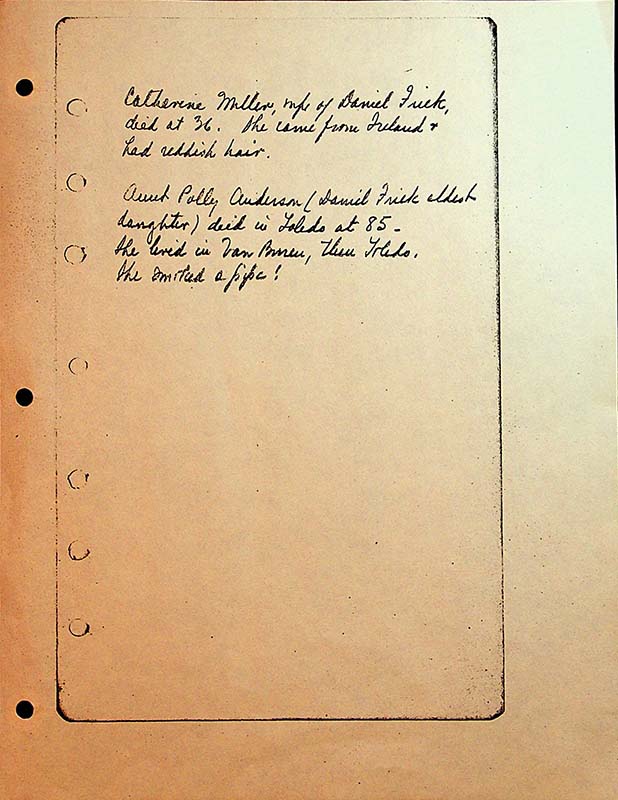 Catherine Miller, wife of Daniel Frick,
died at 36. She came from Ireland &
had reddish hair.
Aunt Polly Anderson (Daniel Frick oldest
daughter) died in Toledo at 85-
She lived in Van Buren, then Toledo.
She smoked a pipe!